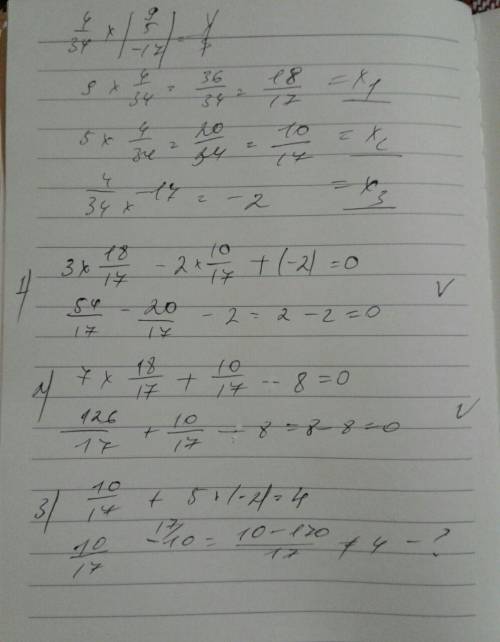 4/34 × | 9 5 -17 | =
9 × 4/34 = 36/34 = 18/17 = x1
5 × 4/34 = 20/34 = 10/17 = x2
4/34 × -17 = -2 = x3
1) 3 × 18/17 - 2 × 10/17 + (-2) = 0
54/17 - 20/17 - 2 = 2 - 2 = 0 V
2) 7 × 18/17 + 10/17 - 8 = 0
126/17 + 10/17 - 8 = 8 - 8 = 0 V
3) 10/17 + 5 × (-2) = 4
10/17 17/ -10 = 10-170/17 ≠ 4 - ?